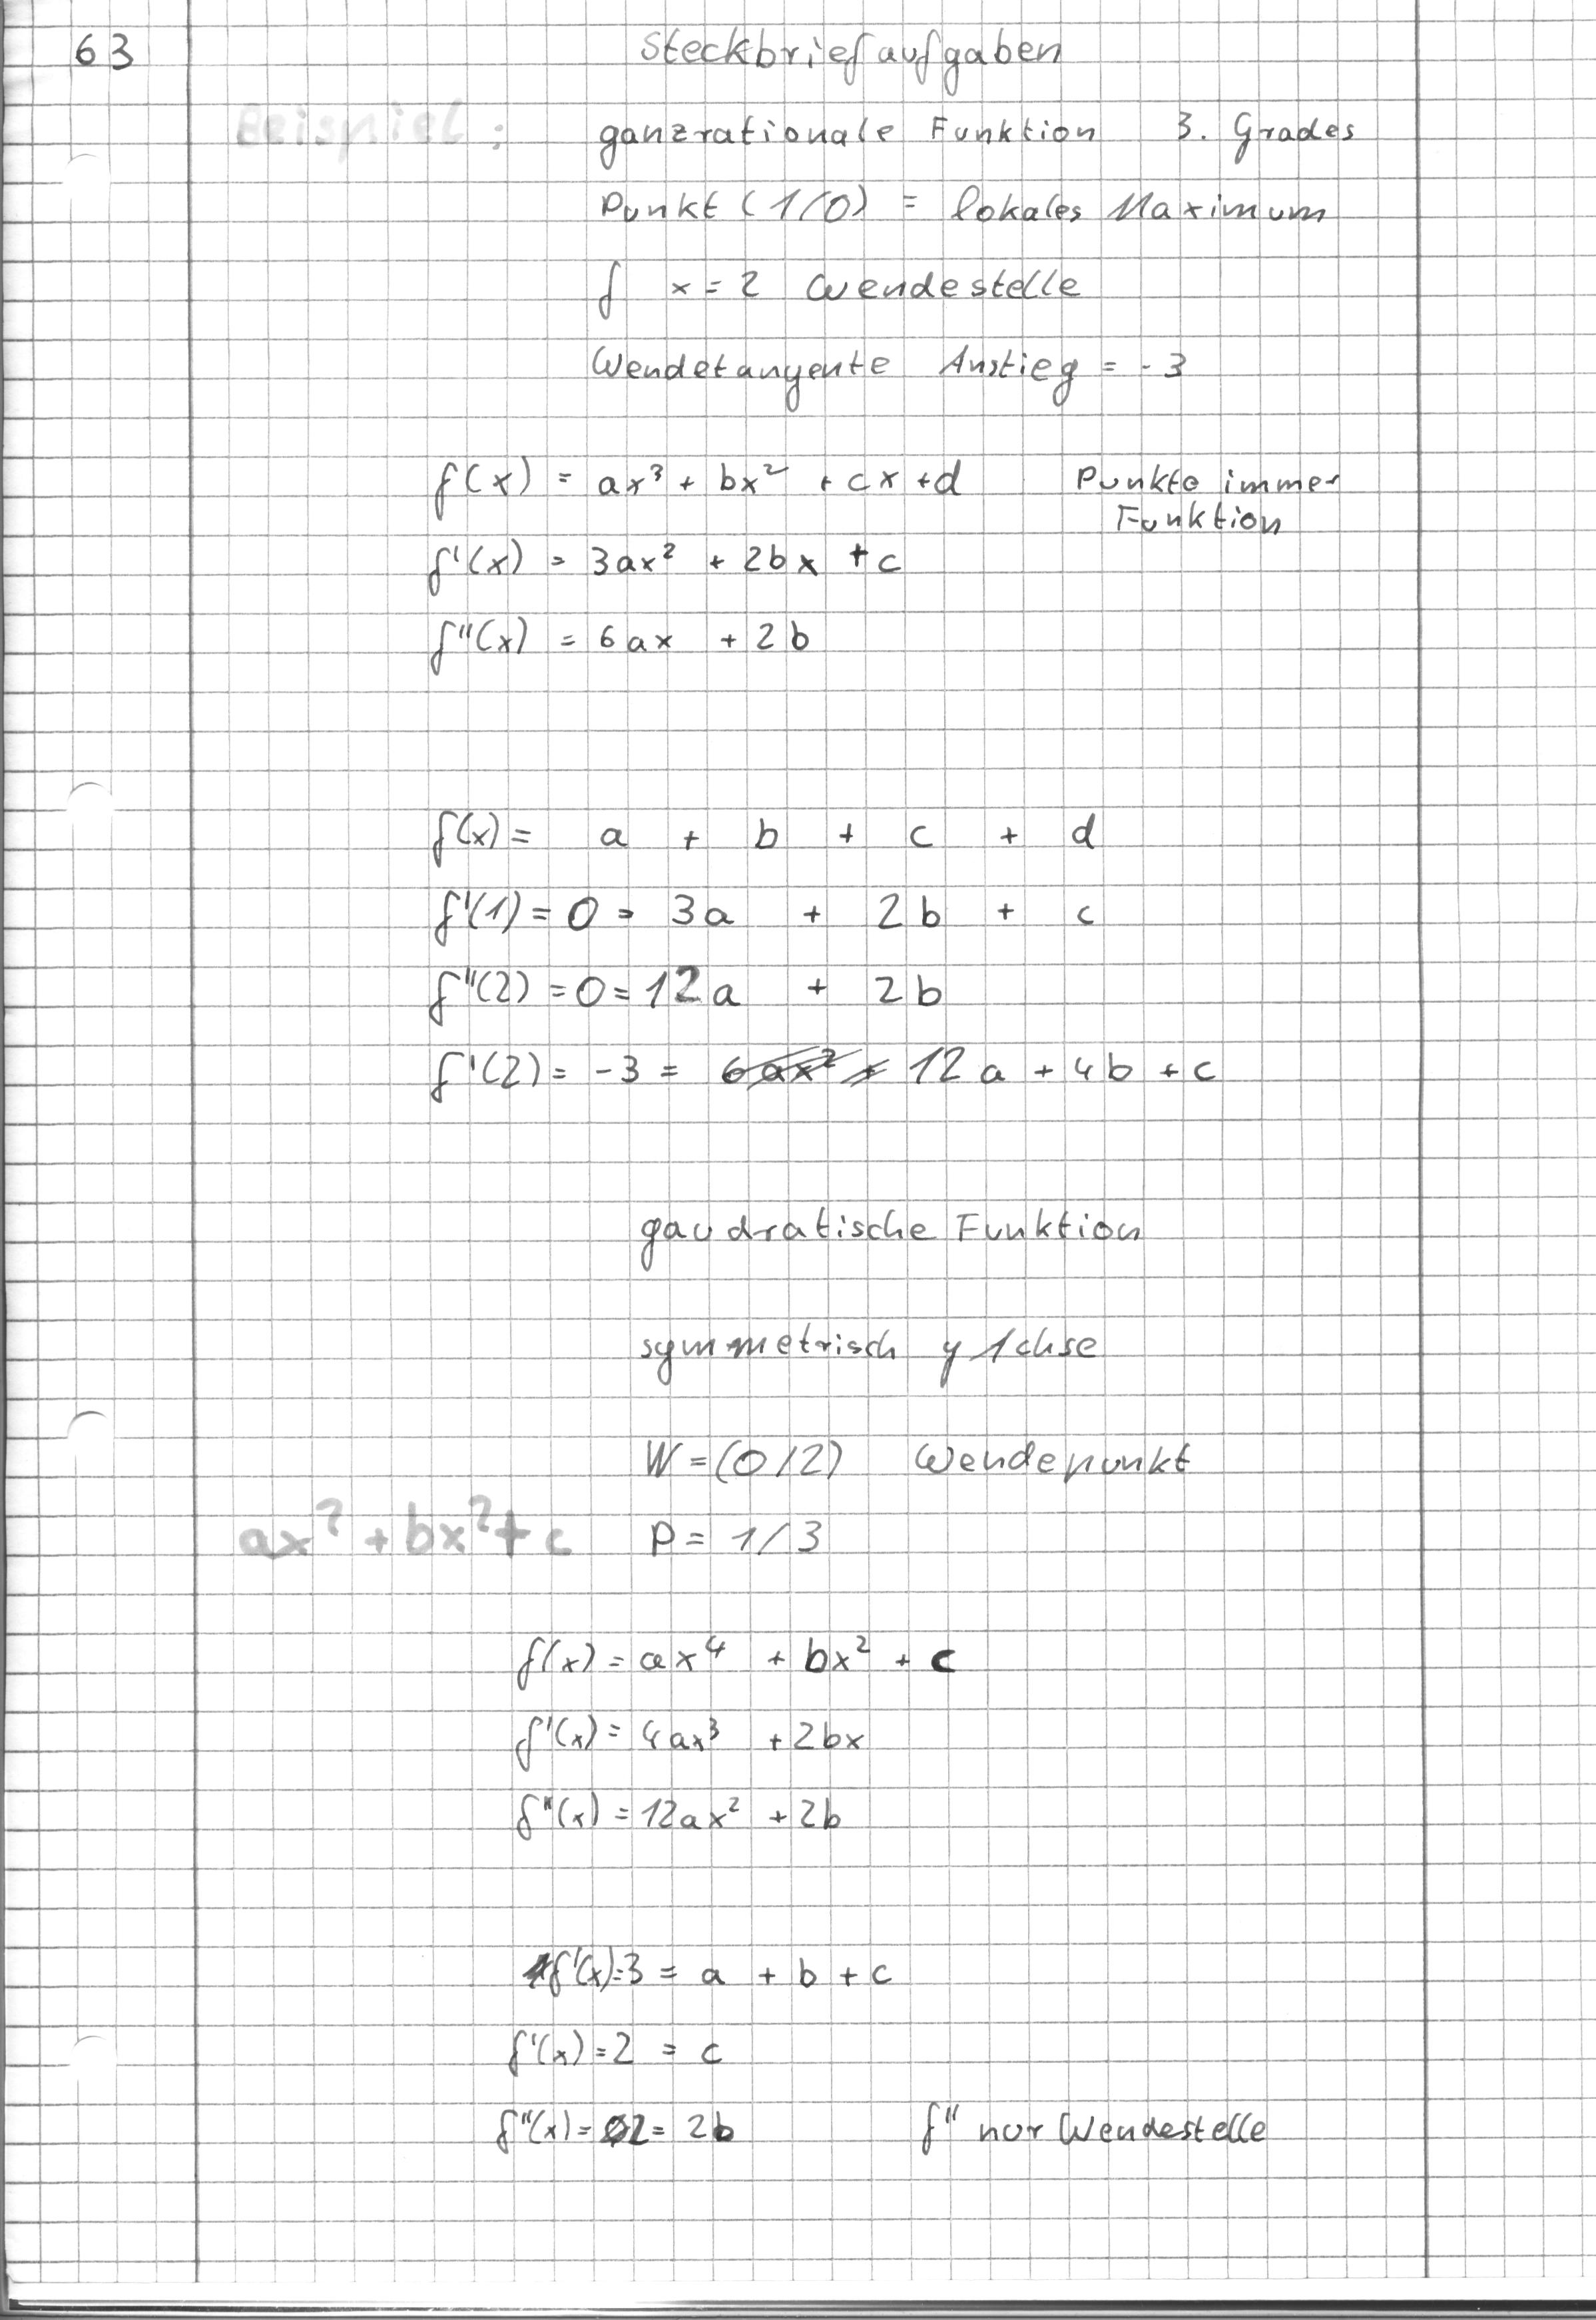 63
Steckbriefaufgaben
Beispiel: ganzrationale Funktion 3. Grades
Punkt (1/0) = lokales Maximum
f x = 2 Wendestelle
Wendetangente Anstieg = -3
f(x) = ax³ + bx² + cx + d Punkte immer
Funktion
f'(x) = 3ax² + 2bx + c
f''(x) = 6ax + 2b
f(x) = a + b + c + d
f'(1) = 0 = 3a + 2b + c
f''(2) = 0 = 12a + 2b
f'(2) = -3 = 12a + 4b + c
gaudratische Funktion
symmetrisch y Achse
W = (0/2) Wendepunkt
ax² + bx² + c P = 1/3
f(x) = ax⁴ + bx² + c
f'(x) = 4ax³ + 2bx
f''(x) = 12ax² + 2b
f'(x) = 3 = a + b + c
f'(x) = 2 = c
f''(x) = = 2b f'' nur Wendestelle